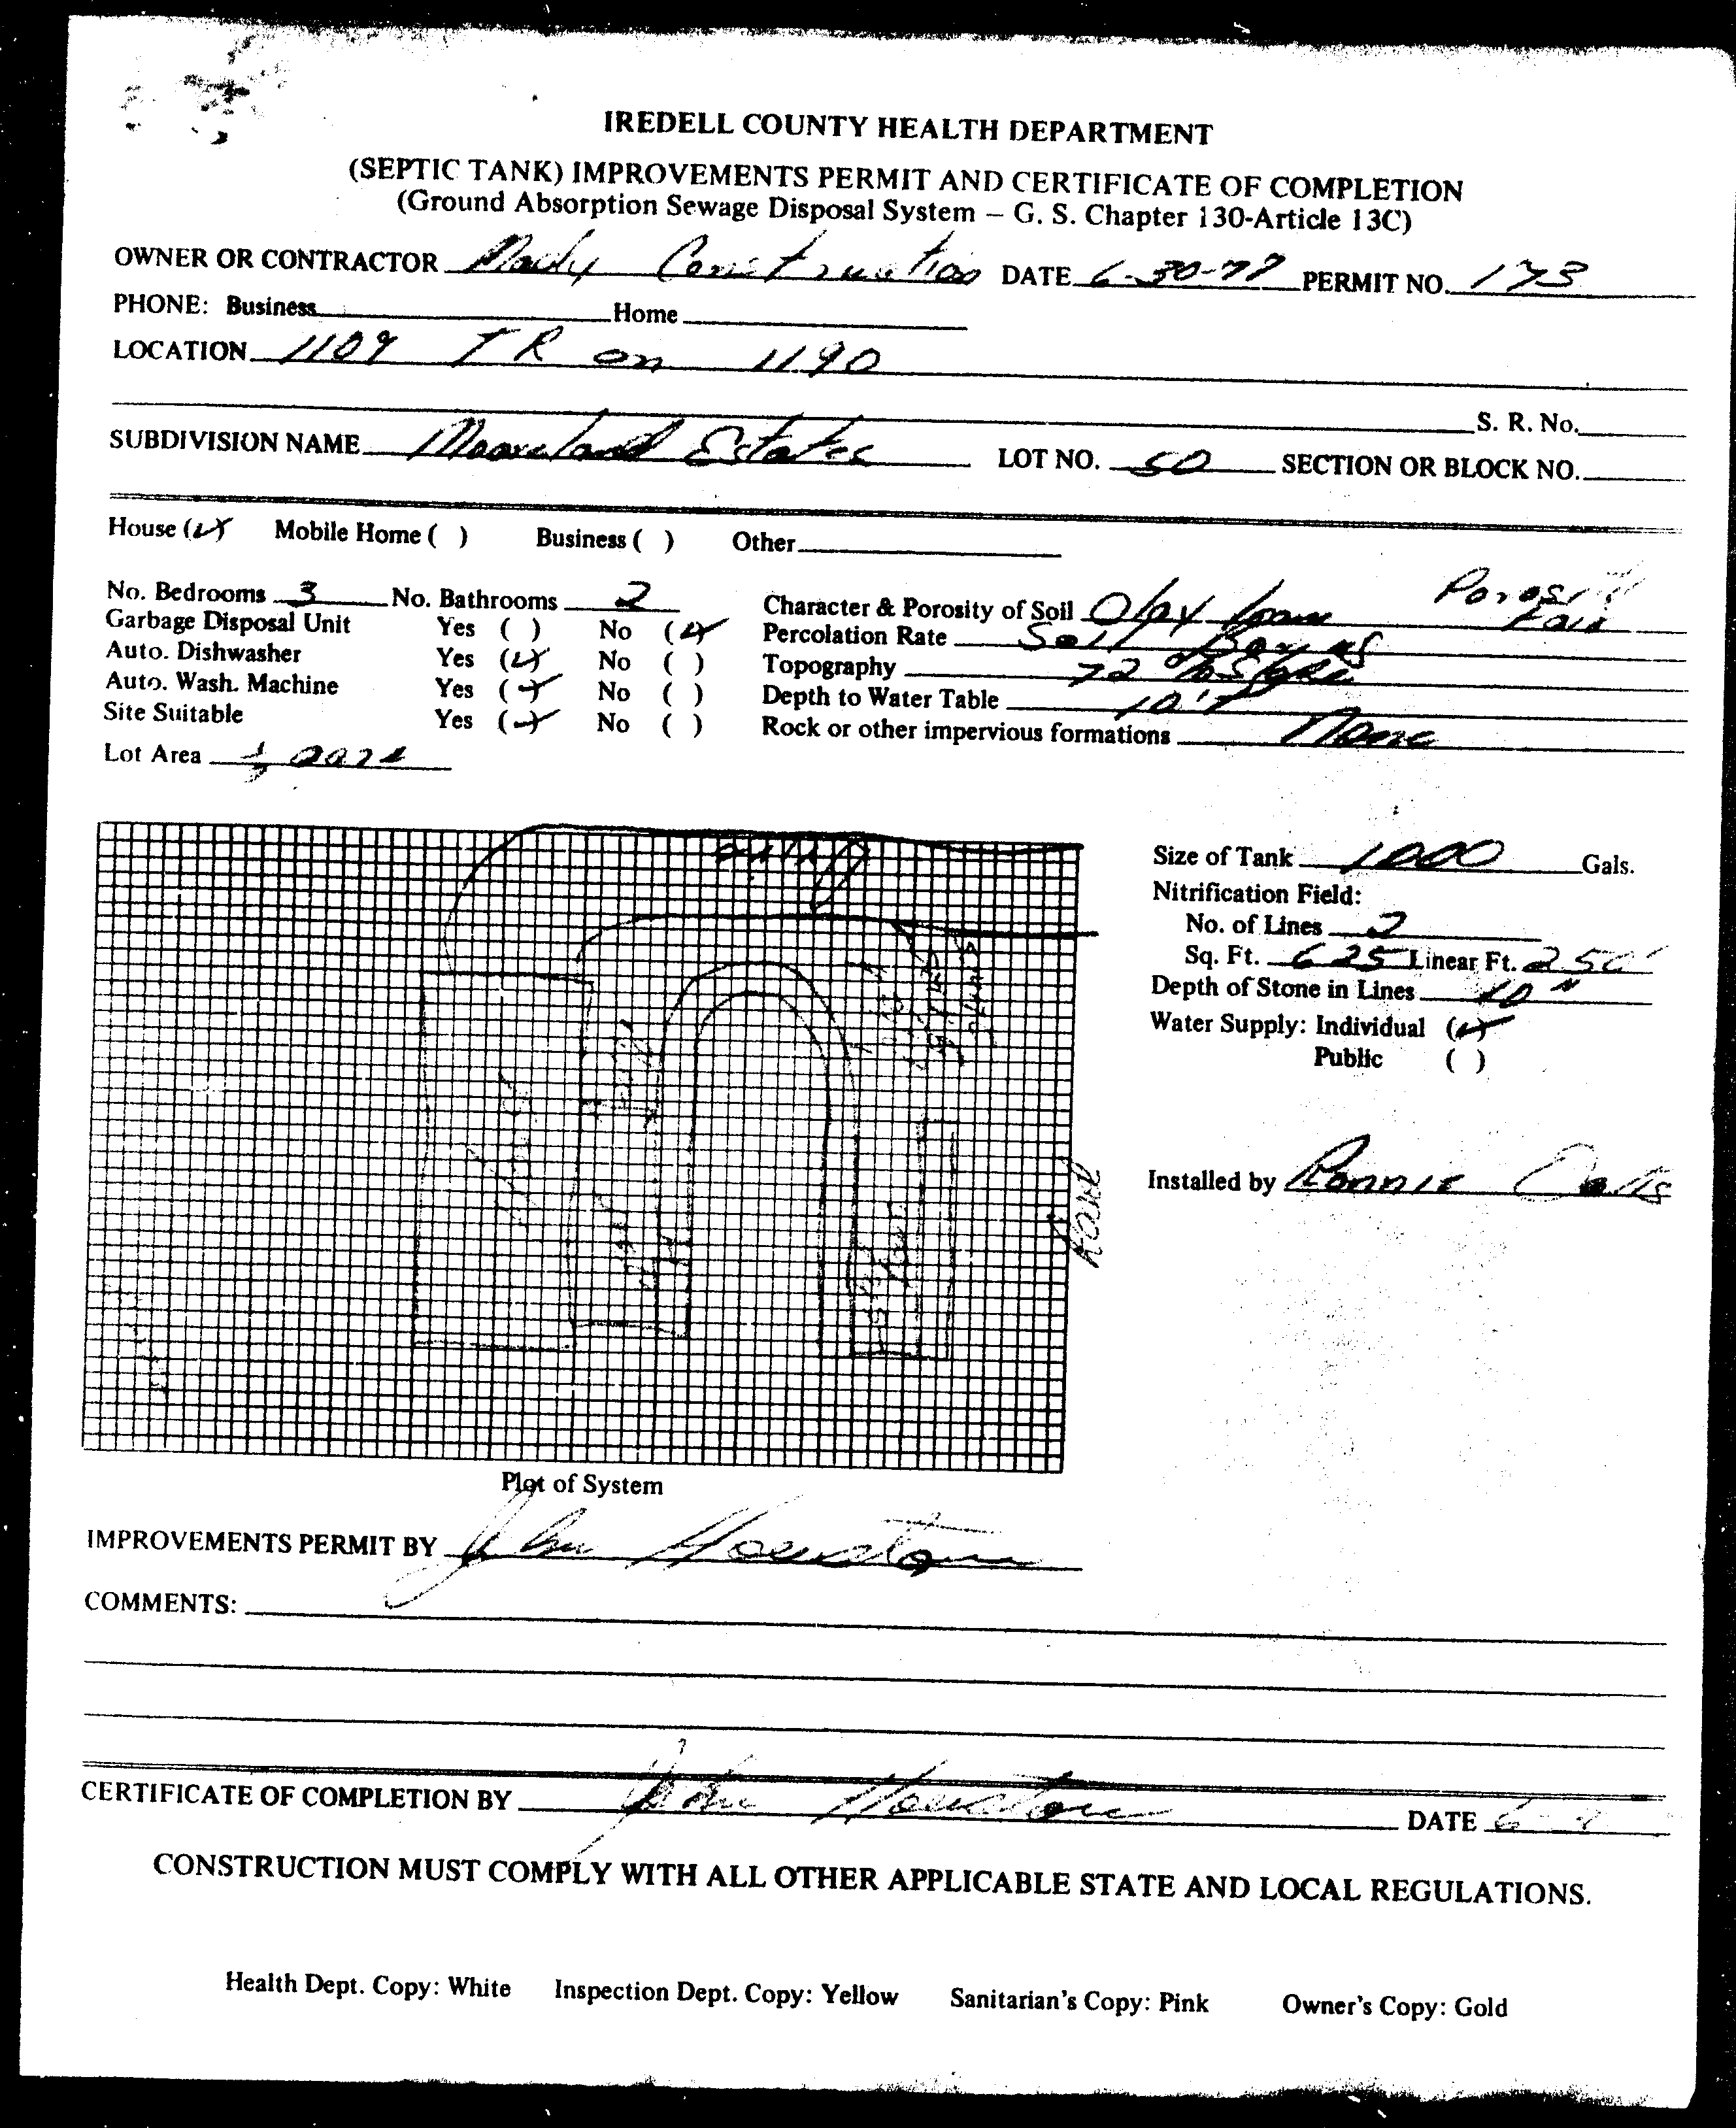 IREDELL COUNTY HEALTH DEPARTMENT
(SEPTIC TANK) IMPROVEMENTS PERMIT AND CERTIFICATE OF COMPLETION
(Ground Absorption Sewage Disposal System – G. S. Chapter 130-Article 13C)
OWNER OR CONTRACTOR Construction DATE 6-30-77 PERMIT NO. 173
PHONE: Business Home
LOCATION 1109 T R on 1190
S. R. No.
SUBDIVISION NAME Mooreland Estates LOT NO. 50 SECTION OR BLOCK NO.
House (✓) Mobile Home ( ) Business ( ) Other
No. Bedrooms 3 No. Bathrooms 2 Character & Porosity of Soil Clay loam Porosity Fair
Garbage Disposal Unit Yes ( ) No (✓) Percolation Rate Soil
Auto. Dishwasher Yes (✓) No ( ) Topography % Slope
Auto. Wash. Machine Yes (✓) No ( ) Depth to Water Table 10'+
Site Suitable Yes (✓) No ( ) Rock or other impervious formations None
Lot Area ½ acre
Size of Tank 1000 Gals.
Nitrification Field:
No. of Lines 2
Sq. Ft. 625 Linear Ft. 250'
Depth of Stone in Lines 10"
Water Supply: Individual (✓)
Public ( )
Installed by Ronnie
Plot of System
IMPROVEMENTS PERMIT BY John Houston
COMMENTS:
CERTIFICATE OF COMPLETION BY John Houston DATE 6
CONSTRUCTION MUST COMPLY WITH ALL OTHER APPLICABLE STATE AND LOCAL REGULATIONS.
Health Dept. Copy: White Inspection Dept. Copy: Yellow Sanitarian's Copy: Pink Owner's Copy: Gold